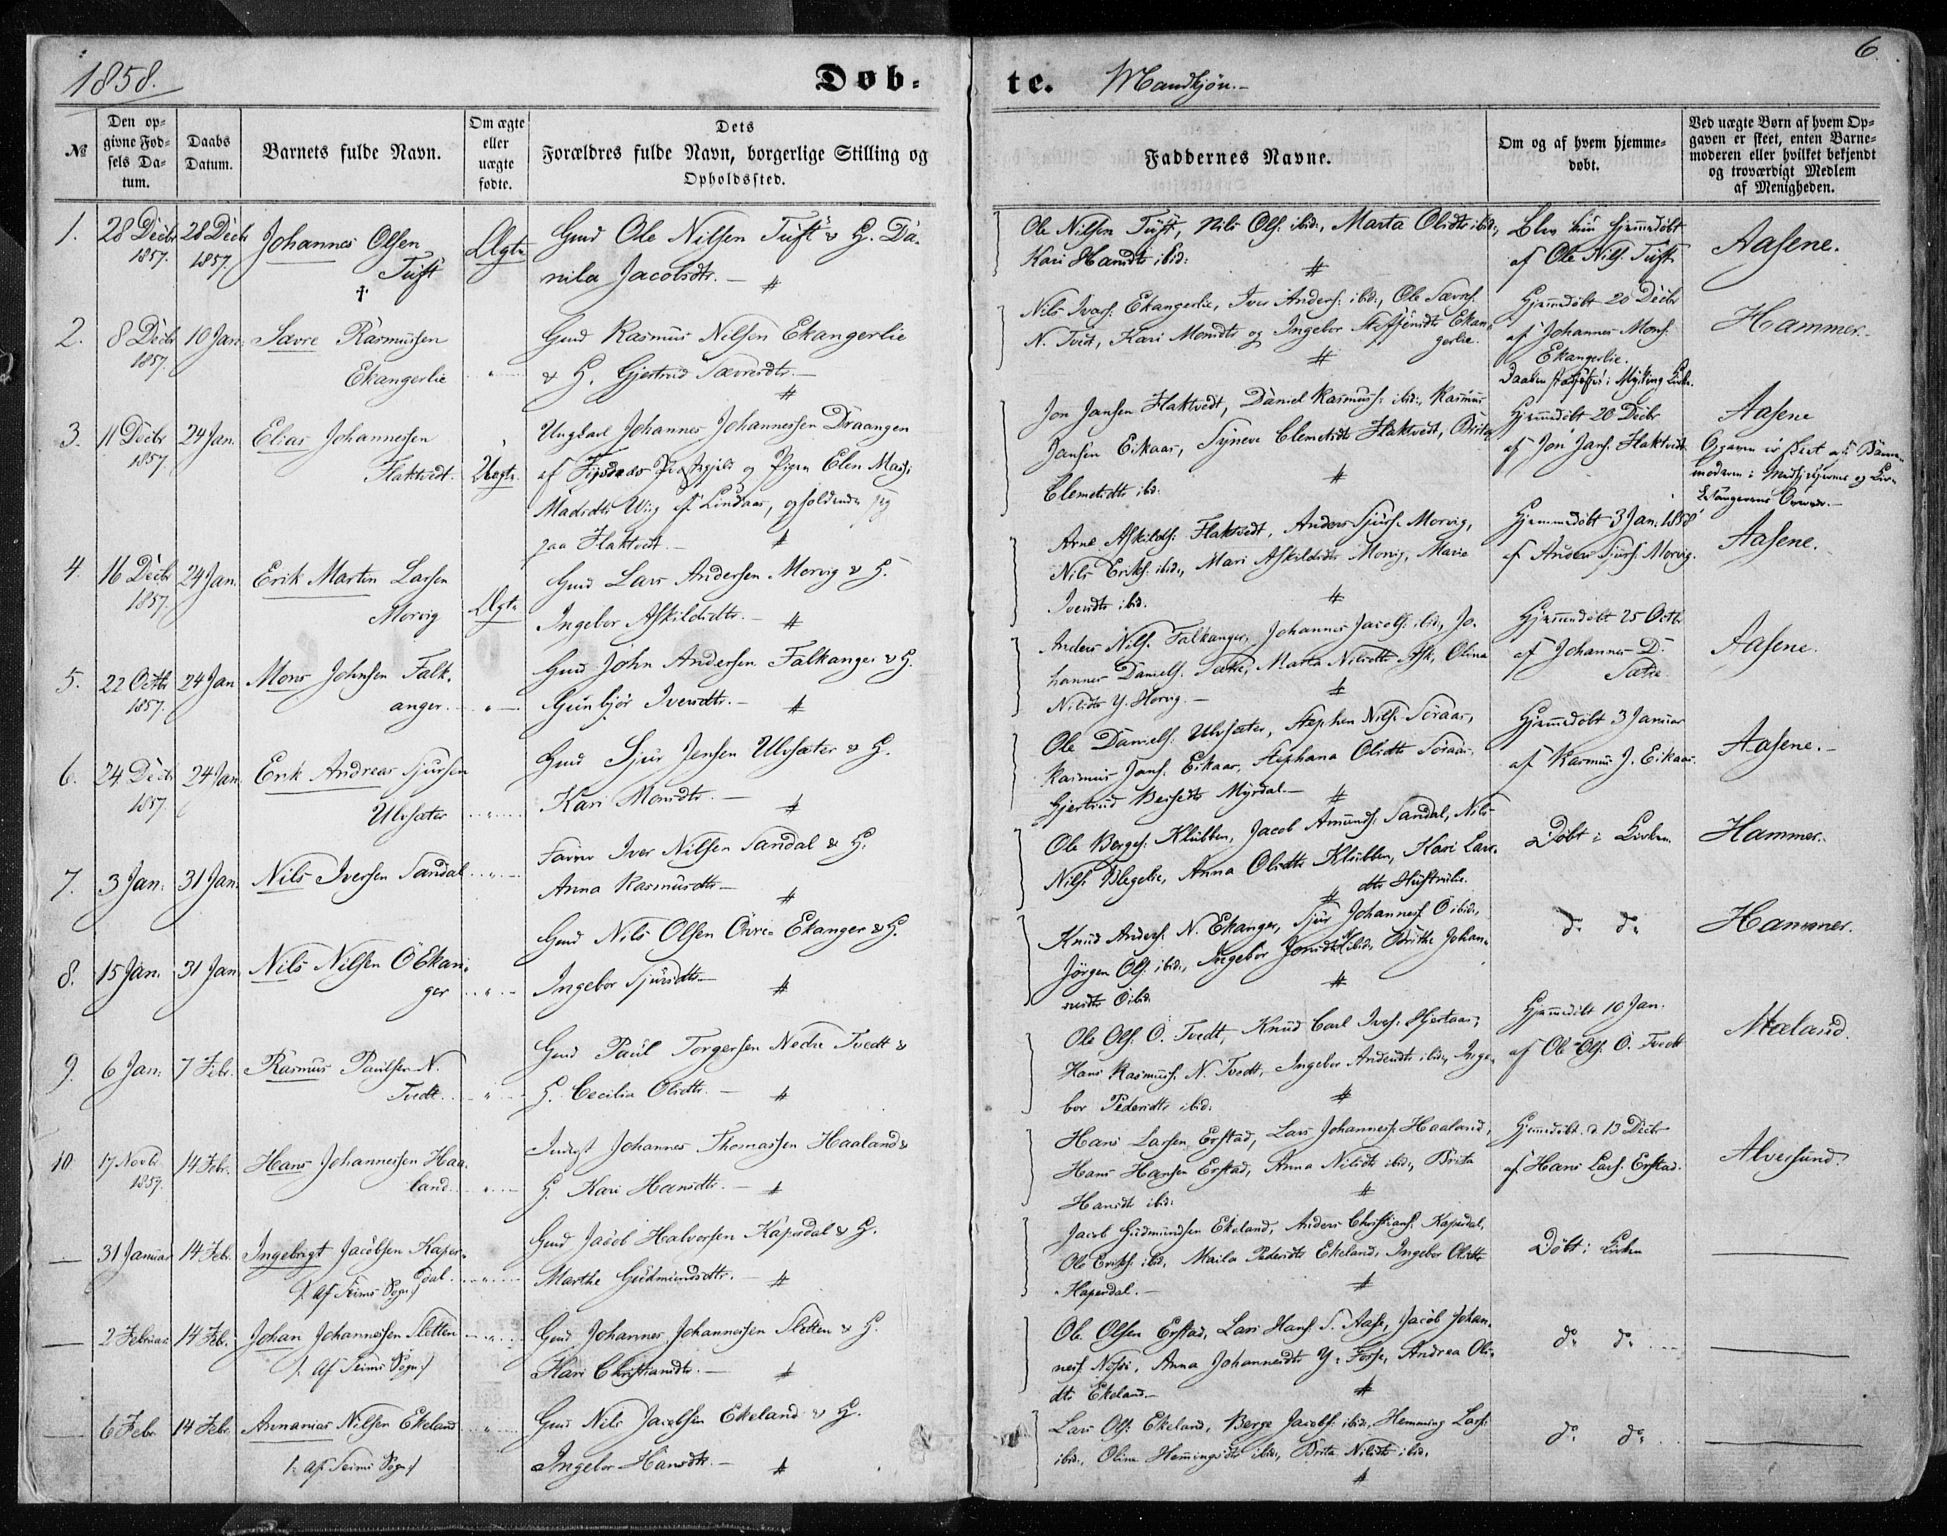 1858.
Døb-
te. Mandkjøn.-
6.
№
Den op-
givne Fød-
sels Da-
tum.
Daabs
Datum.
Barnets fulde Navn.
Om ægte
eller
uægte
fødte.
Dets
Forældres fulde Navn, borgerlige Stilling og
Opholdssted.
Faddernes Navne.
Om og af hvem hjemme-
døbt.
Ved uægte Børn af hvem Op-
gaven er skeet, enten Barne-
moderen eller hvilket bekjendt
og troværdigt Medlem
af Menigheden.
1. 28 Decbr 1857. 28 Decbr 1857. Johannes Olsen
Tuft
Ægte
Gmd Ole Nilsen Tuft & H. Da-
nila Jacobsdtr. -
Ole Nilsen Tuft, Nils Ols. ibid:, Marta Olsdtr ibid:,
Kari Hansdtr ibid:
Blev kun hjemmedøbt
af Ole Nils. Tuft
Aasene.
2. 8 Decbr 1857. 10 Jan. Sævre Rasmussen
Ekangerlie
Gmd Rasmus Nilsen Ekangerlie
& H. Gjertrud Sævresdtr. -
Nils Ivers. Ekangerlie, Iver Anders. ibid:, Ole Sævres.
N. Tveit, Kari Monsdtr og Ingebor Steffensdtr Ekan-
gerlie.
Hjemmedøbt 20 Decbr
af Johannes Mons.
Ekangerlie.
Daaben Myking Kirke.
Hammer.
3. 11 Decbr 1857. 24 Jan. Elias Johannessen
Flaktvedt.
Uægte.
Ungkarl Johannes Johannessen Draangen
af Præstegjeld og Pigen Elen
Madsdtr Wiig af Lindaas, opholdende sig
paa Flaktvedt. -
Jon Jansen Flaktvedt, Daniel Rasmuss. ibid:, Rasmus
Jansen Eikaas, Syneve Clemetsdtr Flaktvedt, Brita
Clemetsdtr ibid.
Hjemmedøbt 20 Decbr
af Jon Jans. Flaktvedt.
Aasene
Opgaven er skeet af Barne-
moderen i Medhjelpernes og Kir-
kesangerens Overvær. -
4. 16 Decbr 1857. 24 Jan. Erik Martin Larsen
Morvig
Ægte
Gmd Lars Andersen Morvig & H.
Ingebor Askildsdtr. -
Arne Askilds. Flaktvedt, Anders Sjurs. Morvig,
Nils Eriks. ibid:, Mari Askildsdtr Morvig, Marie
Iversdtr ibid.
Hjemmedøbt 3 Jan. 1858
af Anders Sjurs. Morvig.
Aasene.
5. 22 Octbr 1857. 24 Jan Mons Johnsen Falk-
anger.
Gmd John Andersen Falkanger & H.
Gunbjør Iversdtr. -
Anders Nils. Falkanger, Johannes Jacobs. ibid:, Jo-
hannes Daniels. Sætre, Marta Nilsdtr Ask, Olina
Nilsdtr Y. Horvig. -
Hjemmedøbt 25 Octbr
af Johannes D.
Sætre.
Aasene.
6. 24 Decbr 1857. 24 Jan Erik Andreas Sjursen
Ulvsæter
Gmd Sjur Jensen Ulvsæter & H.
Kari Monsdtr. -
Ole Daniels. Ulvsæter, Stephen Nils. Søraas,
Rasmus Jans. Eikaas, Stephana Olsdtr Søraas.
Gjertrud Mÿrdal. -
Hjemmedøbt 3 Januar
af Rasmus J. Eikaas.
Aasene. -
7. 3 Jan. 31 Jan. Nils Iversen Sandal
Iver Nilsen Sandal & H.
Anna Rasmusdtr -
Ole Berges. Klubben, Jacob Amunds. Sandal, Nils
Nils. Anna Olsdtr Klubben, Kari Lars-
dtr
Døbt i Kirken
Hammer.
8. 15 Jan. 31 Jan. Nils Nilsen Ö Ekan-
ger
Gmd Nils Olsen Övre Ekanger & H.
Ingebor Sjursdtr -
Knud Anders. N. Ekanger, Sjur Johannes. Ö ibid:,
Jörgen Ols. ibid:, Ingebor Jonsdtr ibid:, Brithe Johan-
nesdtr Ö ibid.
do do
Hammer.
9. 6 Jan. 7 Febr. Rasmus Paulsen N.
Tvedt.
Gmd Paul Torgersen Nedre Tvedt &
H. Cecilia Olsdtr. -
Ole Ols. Ö. Tvedt, Knud Carl Ivers. Hjertaas,
Hans Rasmuss. N. Tvedt, Ingebor Andersdtr ibid:, Inge-
bor Pedersdtr ibid.
Hjemmedøbt 10 Jan.
af Ole Ols. Ö. Tvedt
Mæland.
10 17 Novbr 1857. 14 Febr. Hans Johannessen Haa-
land.
Inderst Johannes Thomassen Haaland &
H. Kari Hansdtr. -
Hans Larsen Erstad, Lars Johannes. Haaland,
Hans Hansen Erstad, Anna Nilsdtr ibid:, Brita
Hansdtr ibid.
Hjemmedøbt d 13 Decbr
af Hans Lars. Erstad.
Alversund.
— 31 Januar 14 Febr. Ingebrigt Jacobsen Kaper-
dal.
/: Af Seims Sogn :/
Gmd Jacob Halvorsen Kaperdal & H.
Marthe Gudmundsdtr. -
Jacob Gudmundsen Ekeland, Anders Christians. Kaperdal,
Ole Eriks. ibid, Maila Pedersdtr Ekeland, Ingebor Olsdtr
Kaperdal. -
Døbt i Kirken
— 2 Februar 14 Febr. Johan Johannessen Sletten
/: Af Seims Sogn :/
Gmd Johannes Johannessen Sletten & H.
Kari Christiansdtr. -
Ole Olsen Erstad, Lars Hans. S. Aase, Jacob Johan-
nes. Anna Johannesdtr Y. Fosse, Andrea Ols-
dtr Ekeland. -
do do
— 6 Febr. 14 Febr. Annanias Nilsen Ekeland
/: af Seims Sogn :/
Gmd Nils Jacobsen Ekeland & H.
Ingebor Hansdtr. -
Lars Ols. Ekeland, Berge Jacobs. ibid:, Hemming Lars.
ibid:, Oline Hemmingsdtr ibid:, Brita Nilsdtr ibid.
do do